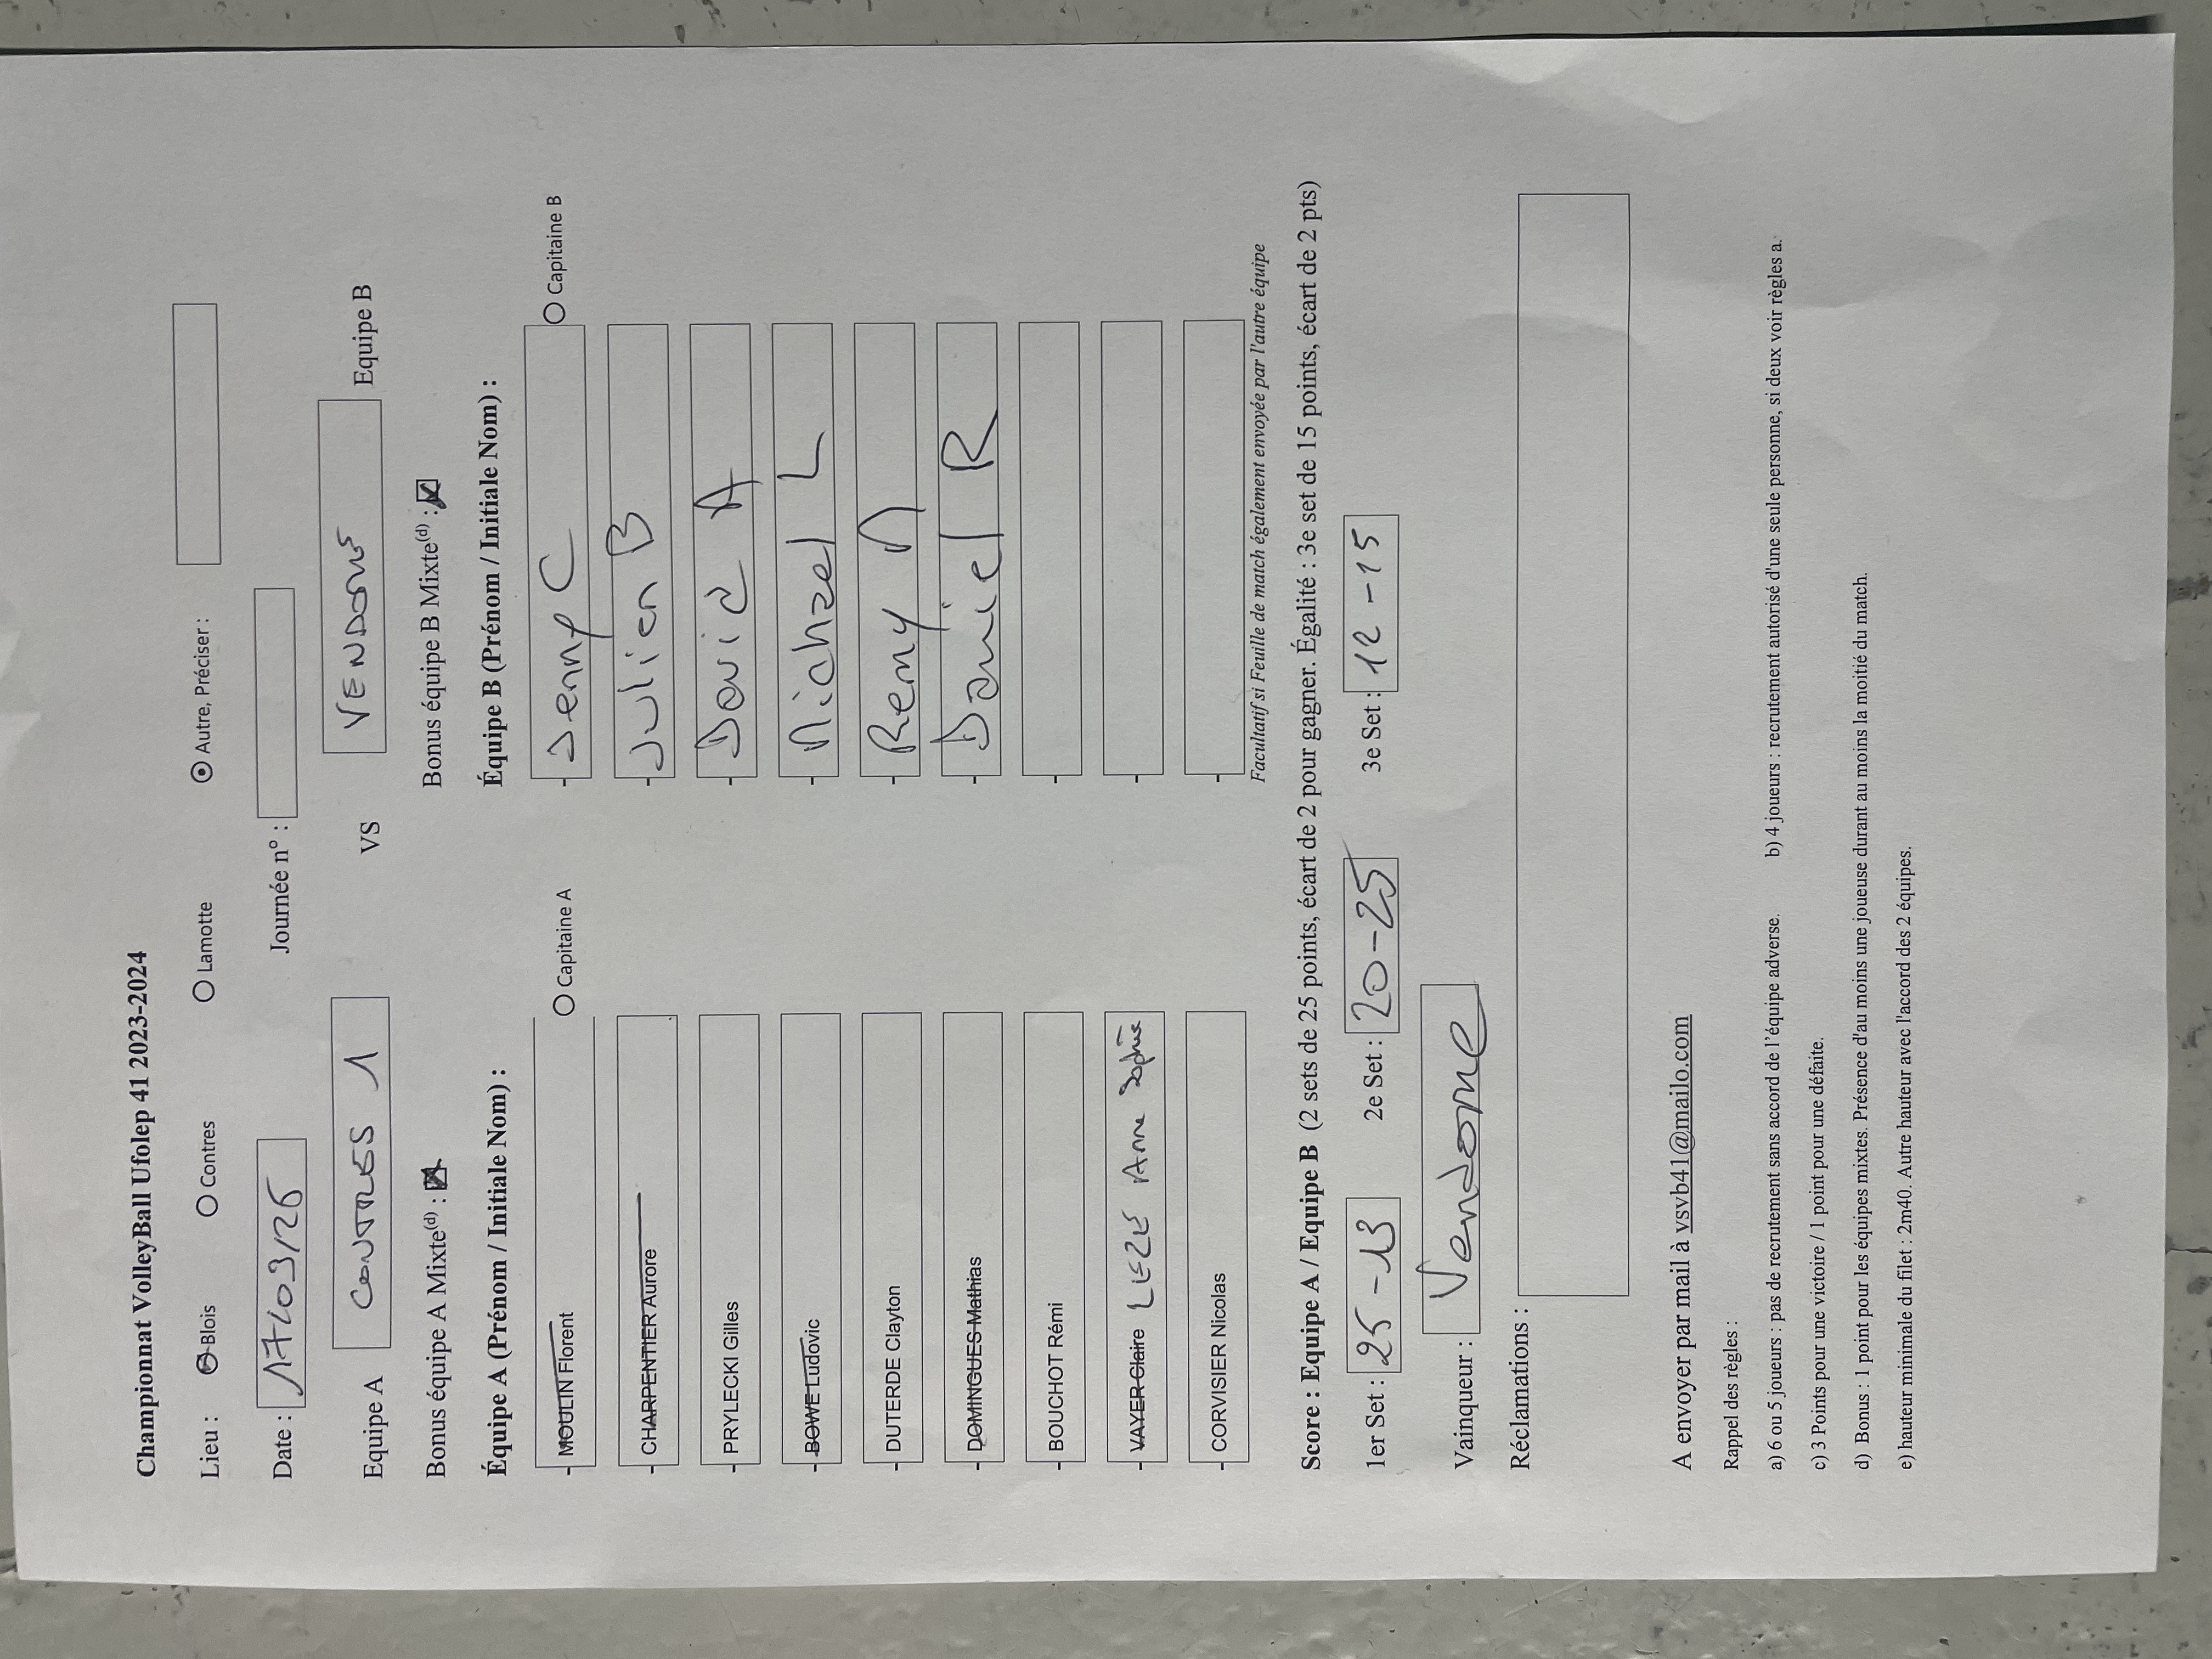 Championnat VolleyBall Ufolep 41 2023-2024
Lieu : Blois Contres Lamotte Autre, Préciser :
Date : 17/03/26 Journée n° :
Equipe A CONTRES 1 VS VENDOME Equipe B
Bonus équipe A Mixte(d) : Bonus équipe B Mixte(d) :
Équipe A (Prénom / Initiale Nom) : Équipe B (Prénom / Initiale Nom) :
- MOULIN Florent Capitaine A - Jenny C Capitaine B
- CHARPENTIER Aurore - Julien B
- PRYLECKI Gilles - David A
- BOWE Ludovic - Michael L
- DUTERDE Clayton - Remy M
- DOMINGUES Mathias - Daniel R
- BOUCHOT Rémi -
- VAYER Claire LEZE Anne Sophie -
- CORVISIER Nicolas -
Facultatif si Feuille de match également envoyée par l'autre équipe
Score : Equipe A / Equipe B (2 sets de 25 points, écart de 2 pour gagner. Égalité : 3e set de 15 points, écart de 2 pts)
1er Set : 25-13 2e Set : 20-25 3e Set : 12-15
Vainqueur : Vendome
Réclamations :
A envoyer par mail à vsvb41@mailo.com
Rappel des règles :
a) 6 ou 5 joueurs : pas de recrutement sans accord de l'équipe adverse. b) 4 joueurs : recrutement autorisé d'une seule personne, si deux voir règles a.
c) 3 Points pour une victoire / 1 point pour une défaite.
d) Bonus : 1 point pour les équipes mixtes. Présence d'au moins une joueuse durant au moins la moitié du match.
e) hauteur minimale du filet : 2m40. Autre hauteur avec l'accord des 2 équipes.